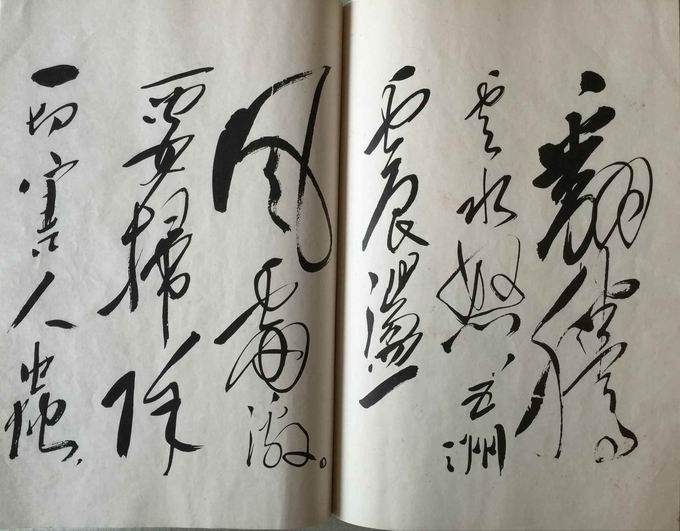 翻騰
雲水怒五洲
震盪
風雷激。
要掃除
一切害人蟲，